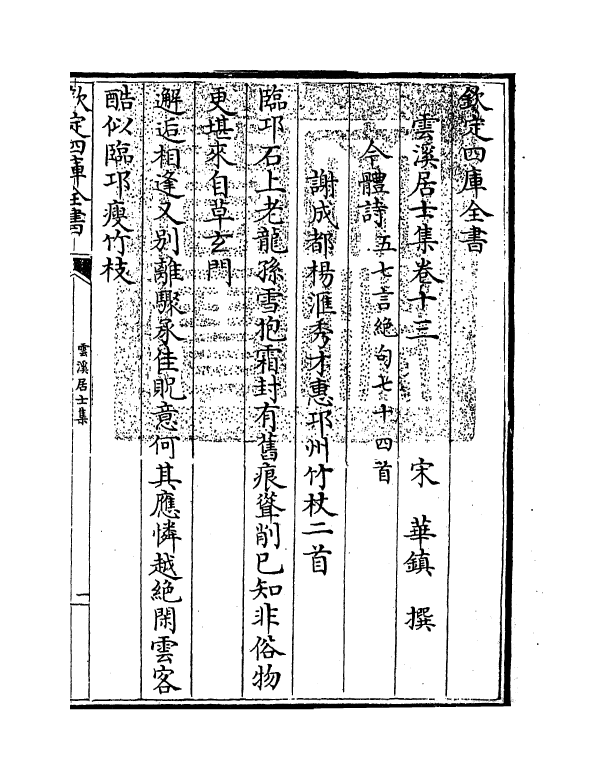 欽定四庫全書
雲溪居士集卷十三　宋　華鎮　撰
今體詩五七言絶句七十四首
謝成都楊滙秀才惠邛州竹杖二首
臨邛石上老龍孫雪抱霜封有舊痕聳削已知非俗物
更堪來自草玄門
邂逅相逢又别離驟承佳貺意何其應憐越絶閑雲客
酷似臨邛瘦竹枝
欽定四庫全書
雲溪居士集
一